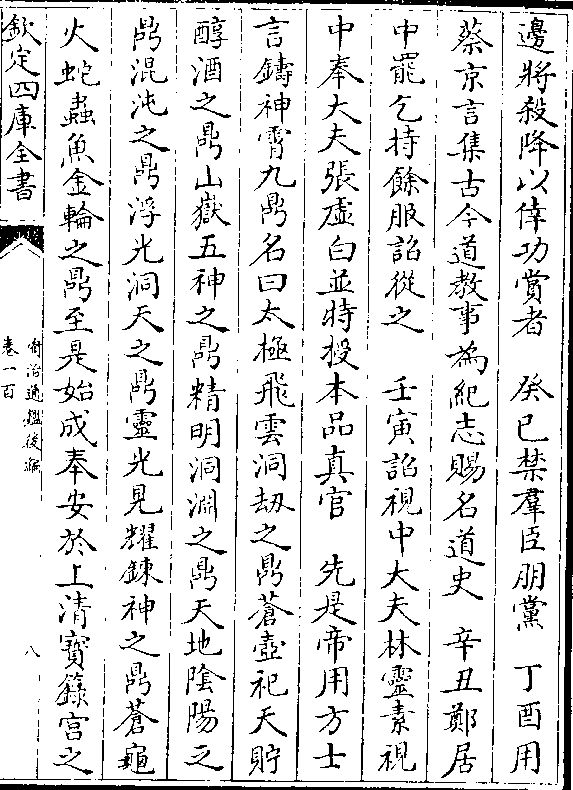 邊將殺降以倖功賞者　癸巳禁羣臣朋黨　丁酉用
蔡京言集古今道教事為紀志賜名道史　辛丑鄭居
中罷乞持餘服詔從之　壬寅詔視中大夫林靈素視
中奉大夫張虛白並特授本品真官　先是帝用方士
言鑄神霄九鼎名曰太極飛雲洞劫之鼎蒼壺祀天貯
醇酒之鼎山嶽五神之鼎精明洞淵之鼎天地陰陽之
鼎混沌之鼎浮光洞天之鼎靈光晃耀鍊神之鼎蒼龜
火蛇蟲魚金輪之鼎至是始成奉安於上清寶籙宮之
欽定四庫全書
資治通鑑後編
卷一百
八